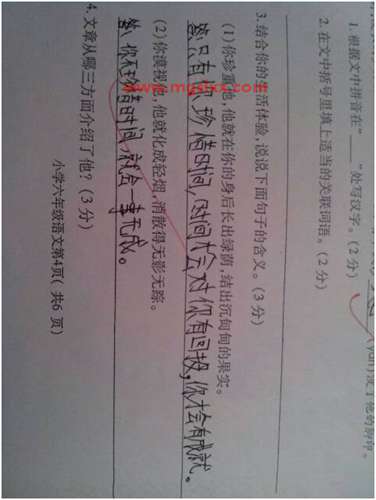 没了他的脚印。
1.根据文中拼音在“____”处写汉字。（2分）
2.在文中括号里填上适当的关联词语。（2分）
3.结合你的生活体验，说说下面句子的含义。（3分）
（1）你珍重他，他就在你的身后长出绿荫，结出沉甸甸的果实。
答：只有你珍惜时间，时间才会对你有回报，你才会有成就。
（2）你漠视他，他就化成轻烟，消散得无影无踪。
答：你不珍惜时间，就会一事无成。
4.文章从哪三方面介绍了他？（3分）
小学六年级语文第4页（共6页）